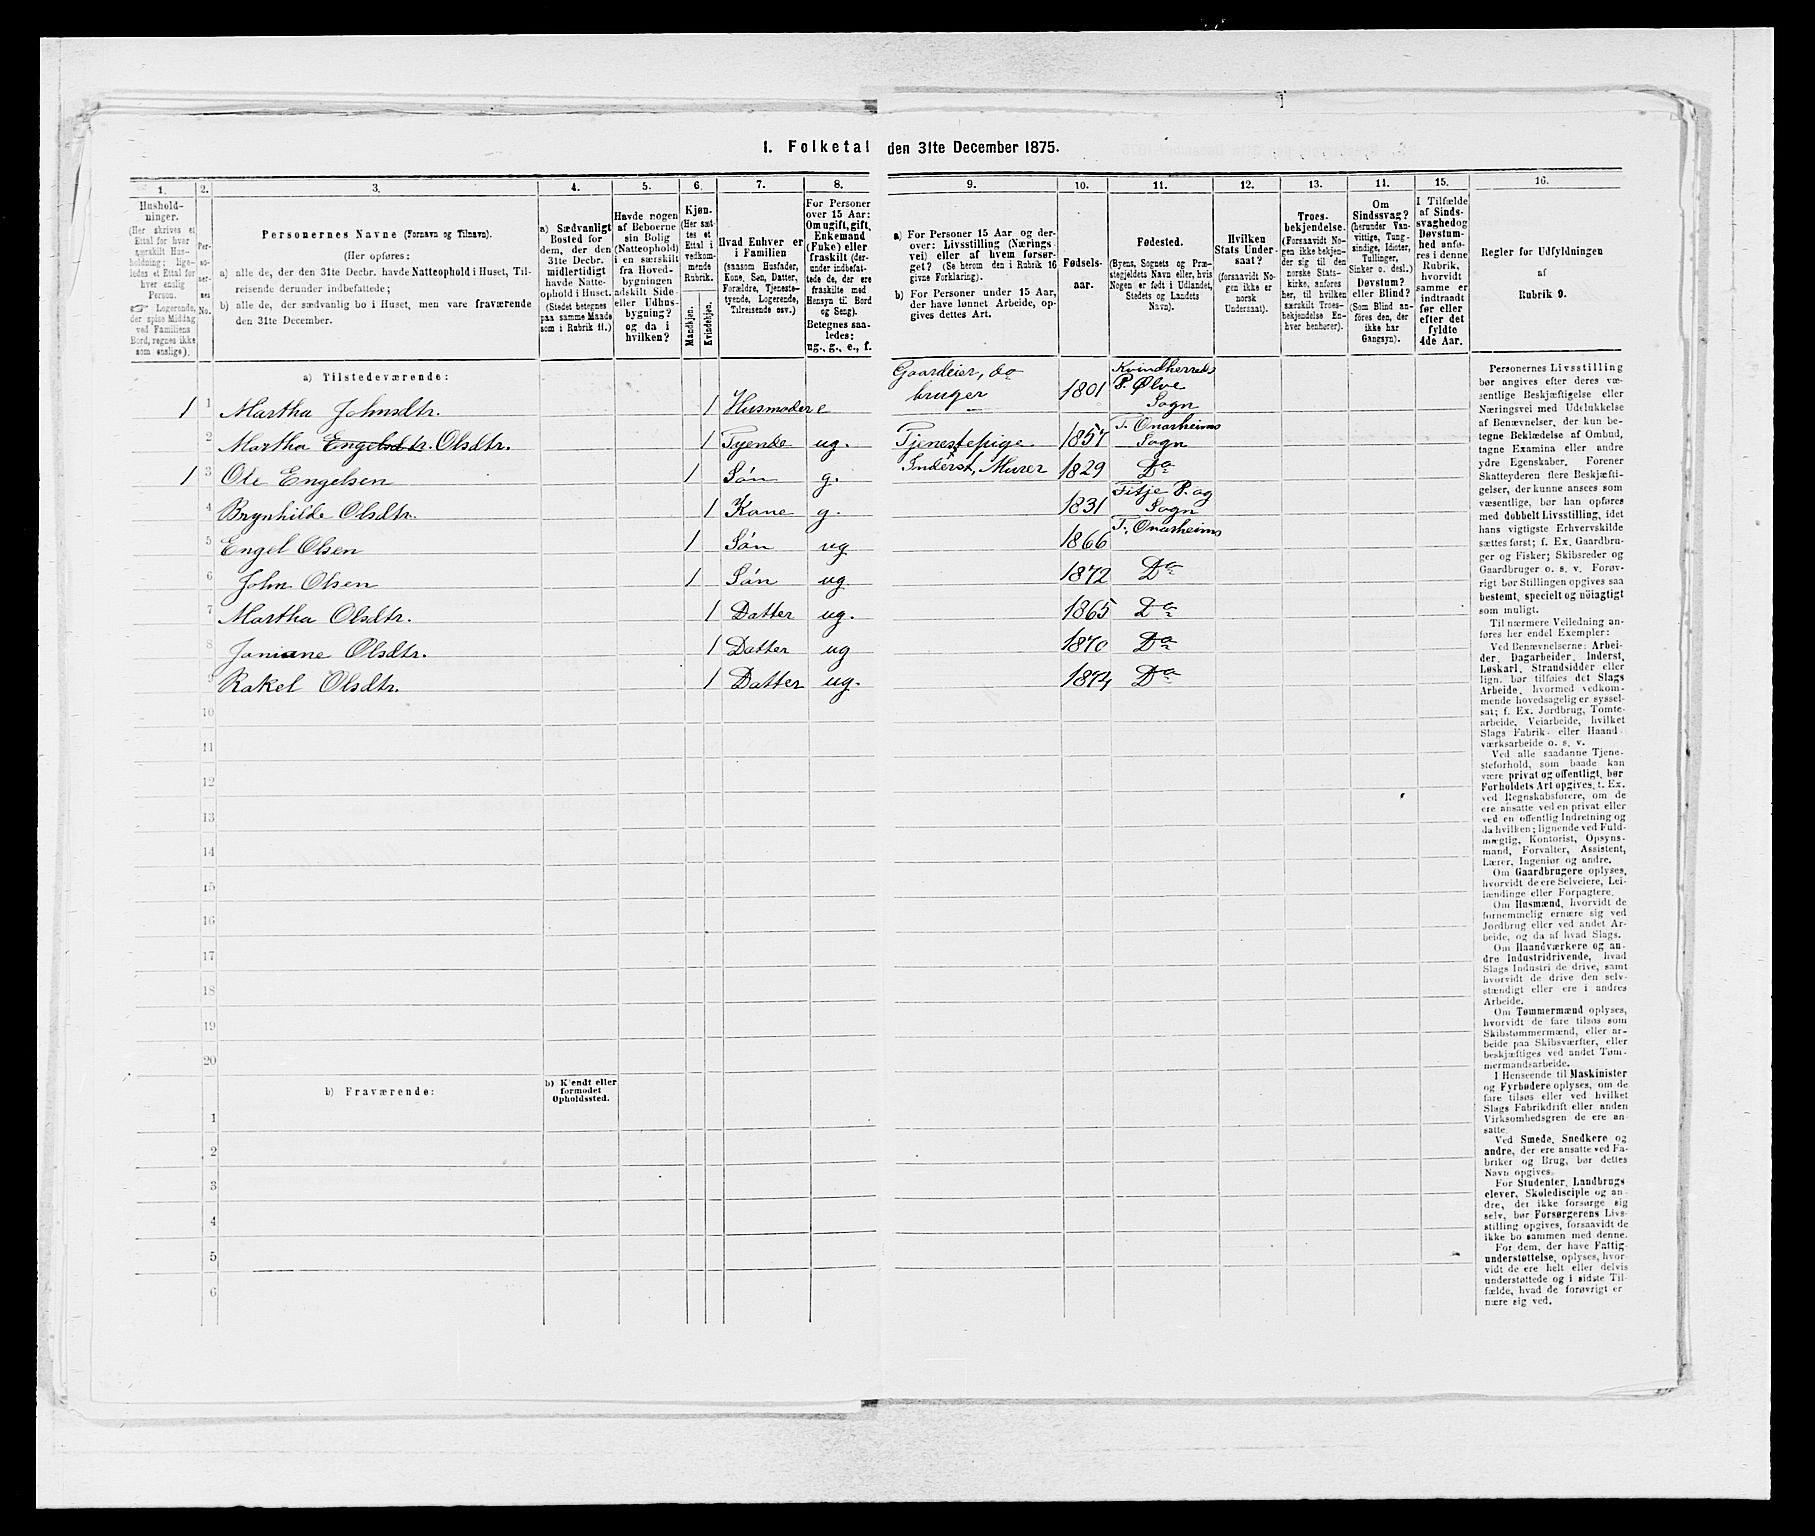 I. Folketal den 31te December 1875.
1. 2. 3. 4. 5. 6. 7. 8. 9. 10. 11. 12. 13. 14. 15. 16.
Hushold-
ninger.
(Her skrives et
Ettal for hver
særskilt Hus-
holdning; lige-
ledes et Ettal for
hver enslig
Person.
☞ Logerende,
der spise Middag
ved Familiens
Bord, regnes ikke
som enslige).
Per-
so-
ner-
nes
No.
Personernes Navne (Fornavn og Tilnavn).
(Her opføres:
a) alle de, der den 31te Decbr. havde Natteophold i Huset, Til-
reisende derunder indbefattede;
b) alle de, der sædvanlig bo i Huset, men vare fraværende
den 31te December.
a) Sædvanligt
Bosted for
dem, der den
31te Decbr.
midlertidigt
havde Natte-
ophold i Huset.
(Stedet betegnes
paa samme Maade
som i Rubrik 11.)
Havde nogen
af Beboerne
sin Bolig
(Natteophold)
i en særskilt
fra Hoved-
bygningen
adskilt Side-
eller Udhus-
bygning?
og da i
hvilken?
Kjøn.
(Her sæt-
tes et
Ettal i
vedkom-
mende
Rubrik.
Mandkjøn.
Kvindekjøn.
Hvad Enhver er
i Familien
(saasom Husfader,
Kone, Søn, Datter,
Forældre, Tjeneste-
tyende, Logerende,
Tilreisende osv.)
For Personer
over 15 Aar:
Om ugift, gift,
Enkemand
(Enke) eller
fraskilt (der-
under indbefat-
tede de, der ere
fraskilte med
Hensyn til Bord
og Seng).
Betegnes saa-
ledes:
ug., g., e., f.
a) For Personer 15 Aar og der-
over: Livsstilling (Nærings-
vei) eller af hvem forsør-
get? (Se herom den i Rubrik 16
givne Forklaring).
b) For Personer under 15 Aar,
der have lønnet Arbeide, op-
gives dettes Art.
Fødsels-
aar.
Fødested.
(Byens, Sognets og Præ-
stegjeldets Navn eller, hvis
Nogen er født i Udlandet,
Stedets og Landets
Navn).
Hvilken
Stats Under-
saat?
(forsaavidt No-
gen ikke er
norsk
Undersaat).
Troes-
bekjendelse.
(Forsaavidt No-
gen ikke bekjen-
der sig til den
norske Stats-
kirke, anføres
her, til hvilken
særskilt Troes-
bekjendelse En-
hver henhører).
Om
Sindssvag?
(herunder Van-
vittige, Tung-
sindige, Idioter,
Tullinger,
Sinker o. desl.)
Døvstum?
eller Blind?
(Som Blind an-
føres den, der
ikke har
Gangsyn).
I Tilfælde
af Sinds-
svaghed og
Døvstum-
hed anfø-
res i denne
Rubrik,
hvorvidt
samme er
indtraadt
før eller
efter det
fyldte
4de Aar.
Regler for Udfyldningen
af
Rubrik 9.
a) Tilstedeværende:
1 1 Martha Johnsdtr. 1 Husmoder e Gaardeier, do bruger 1801 Kvindherreds P. Ølve Sogn
2 Martha Engelsdtr. Olsdtr. 1 Tyende ug. Tjenestepige 1857 T. Onarheims Sogn
1 3 Ole Engelsen 1 Søn g. Inderst, Murer 1829 Do
4 Brynhilde Olsdtr. 1 Kone g. 1831 Fitje P. og Sogn
5 Engel Olsen 1 Søn ug 1866 T. Onarheims
6 John Olsen 1 Søn ug 1872 Do
7 Martha Olsdtr. 1 Datter ug. 1865 Do
8 Janiane Olsdtr. 1 Datter ug 1870 Do
9 Rakel Olsdtr. 1 Datter ug. 1874 Do
10
11
12
13
14
15
16
17
18
19
20
b) Fraværende:
b) Kjendt eller
formodet
Opholdssted.
1
2
3
4
5
6
Personernes Livsstilling
bør angives efter deres væ-
sentlige Beskjæftigelse eller
Næringsvei med Udelukkelse
af Benævnelser, der kun be-
tegne Beklædelse af Ombud,
tagne Examina eller andre
ydre Egenskaber. Forener
Skatteyderen flere Beskjæfti-
gelser, der kunne ansees som
væsentlige, bør han opføres
med dobbelt Livsstilling, idet
hans vigtigste Erhvervskilde
sættes først; f. Ex. Gaardbru-
ger og Fisker; Skibsreder og
Gaardbruger o. s. v. Forøv-
rigt bør Stillingen opgives saa
bestemt, specielt og nöiagtigt
som muligt.
Til nærmere Veiledning an-
føres her endel Exempler:
Ved Benævnelserne: Arbei-
der, Dagarbeider, Inderst,
Løskarl, Strandsidder eller
lign. bør tilføies det Slags
Arbeide, hvormed vedkom-
mende hovedsagelig er syssel-
sat; f. Ex. Jordbrug, Tomte-
arbeide, Veiarbeide, hvilket
Slags Fabrik- eller Haand-
værksarbeide o. s. v.
Ved alle saadanne Tjene-
steforhold, som baade kan
være privat og offentligt, bør
Forholdets Art opgives, t. Ex.
ved Regnskabsførere, om de
ere ansatte ved en privat eller
ved en offentlig Indretning og
da hvilken; lignende ved Fuld-
mægtig, Kontorist, Opsyns-
mand, Forvalter, Assistent,
Lærer, Ingeniør og andre.
Om Gaardbrugere oplyses,
hvorvidt de ere Selveiere, Lei-
lændinge eller Forpagtere.
Om Husmænd, hvorvidt de
fornemmelig ernære sig ved
Jordbrug eller ved andet Ar-
beide, og da af hvad Slags.
Om Haandværkere og an-
dre Industridrivende, hvad
Slags Industri de drive, samt
hvorvidt de drive den selv-
stændigt eller ere i andres
Arbeide.
Om Tømmermænd oplyses,
hvorvidt de fare tilsøs som
Skibstømmermænd, eller ar-
beide paa Skibsværfter, eller
beskjæftiges ved andet Tøm-
mermandsarbeide.
I Henseende til Maskinister
og Fyrbødere oplyses, om de
fare tilsøs eller ved hvilket
Slags Fabrikdrift eller anden
Virksomhedsgren de ere an-
satte.
Ved Smede, Snedkere og
andre, der ere ansatte ved Fa-
briker og Brug, bør dettes
Navn opgives.
For Studenter, Landbrugs-
elever, Skoledisciple og an-
dre, der ikke forsørge sig
selv, bør Forsørgerens Livs-
stilling opgives, forsaavidt de
ikke bo sammen med denne.
For dem, der have Fattig-
understøttelse, oplyses, hvor-
vidt de ere helt eller delvis
understøttede og i sidste Til-
fælde, hvad de forøvrigt er-
nære sig ved.